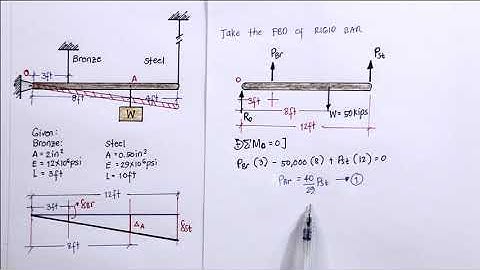 Bronze
Steel
O
3ft
A
8ft
4ft
W
Given:
Bronze:
A = 2in²
E = 12x10⁶psi
L = 3ft
Steel
A = 0.50in²
E = 29x10⁶psi
L = 10ft
12ft
3ft
δBr
ΔA
δst
8ft
Take the FBD of RIGID BAR
PBr
Pst
O
3ft
8ft
Ro
W = 50kips
12ft
ΣMo = 0]
PBr (3) - 50,000 (8) + Pst (12) = 0
PBr = 40/29 Pst → ①